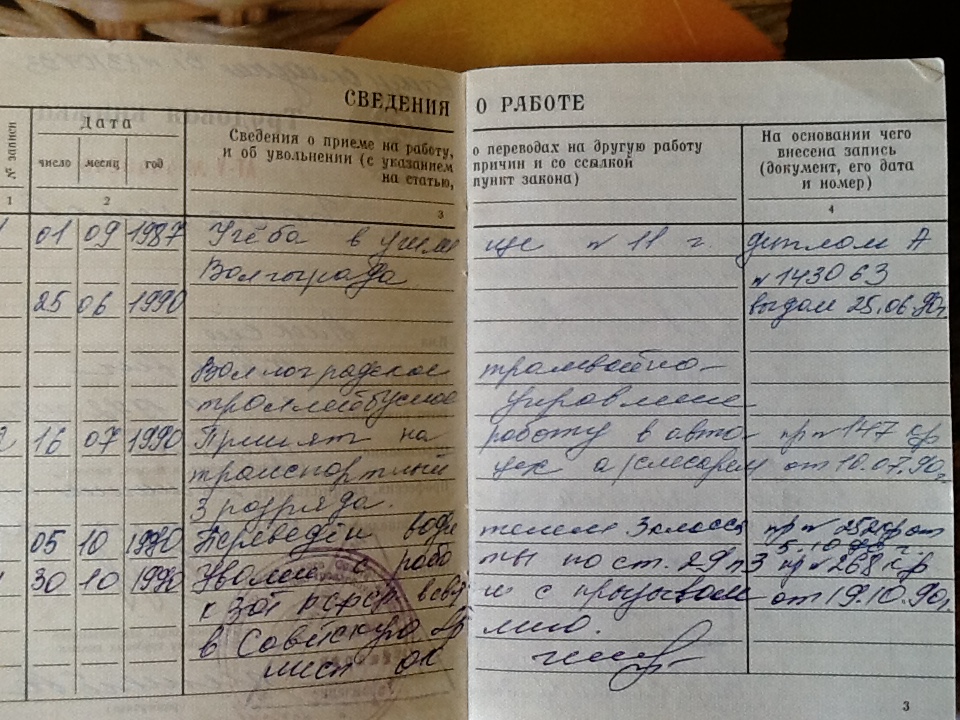 СВЕДЕНИЯ О РАБОТЕ
№ записи
Дата
число месяц год
Сведения о приеме на работу, о переводах на другую работу
и об увольнении (с указанием причин и со ссылкой
на статью, пункт закона)
На основании чего
внесена запись
(документ, его дата
и номер)
1 2 3 4
01 09 1987 Учёба в училище №11 г. диплом А
Волгограда №143063
25 06 1990 выдан 25.06.90г.
Волгоградское трамвайно-
троллейбусное управление
2 16 07 1990 Принят на работу в авто- пр №147 кр
транспортный цех а/слесарем от 10.07.90г
3 разряда.
05 10 1990 Переведён водителем 3 класса пр №252 от
5.10.90г.
30 10 1990 Уволен с работы по ст. 29 п3 пр №268 кр
КЗОТ РСФСР в связи с призывом от 19.10.90г
в Советскую Армию.
инсп ОК
3